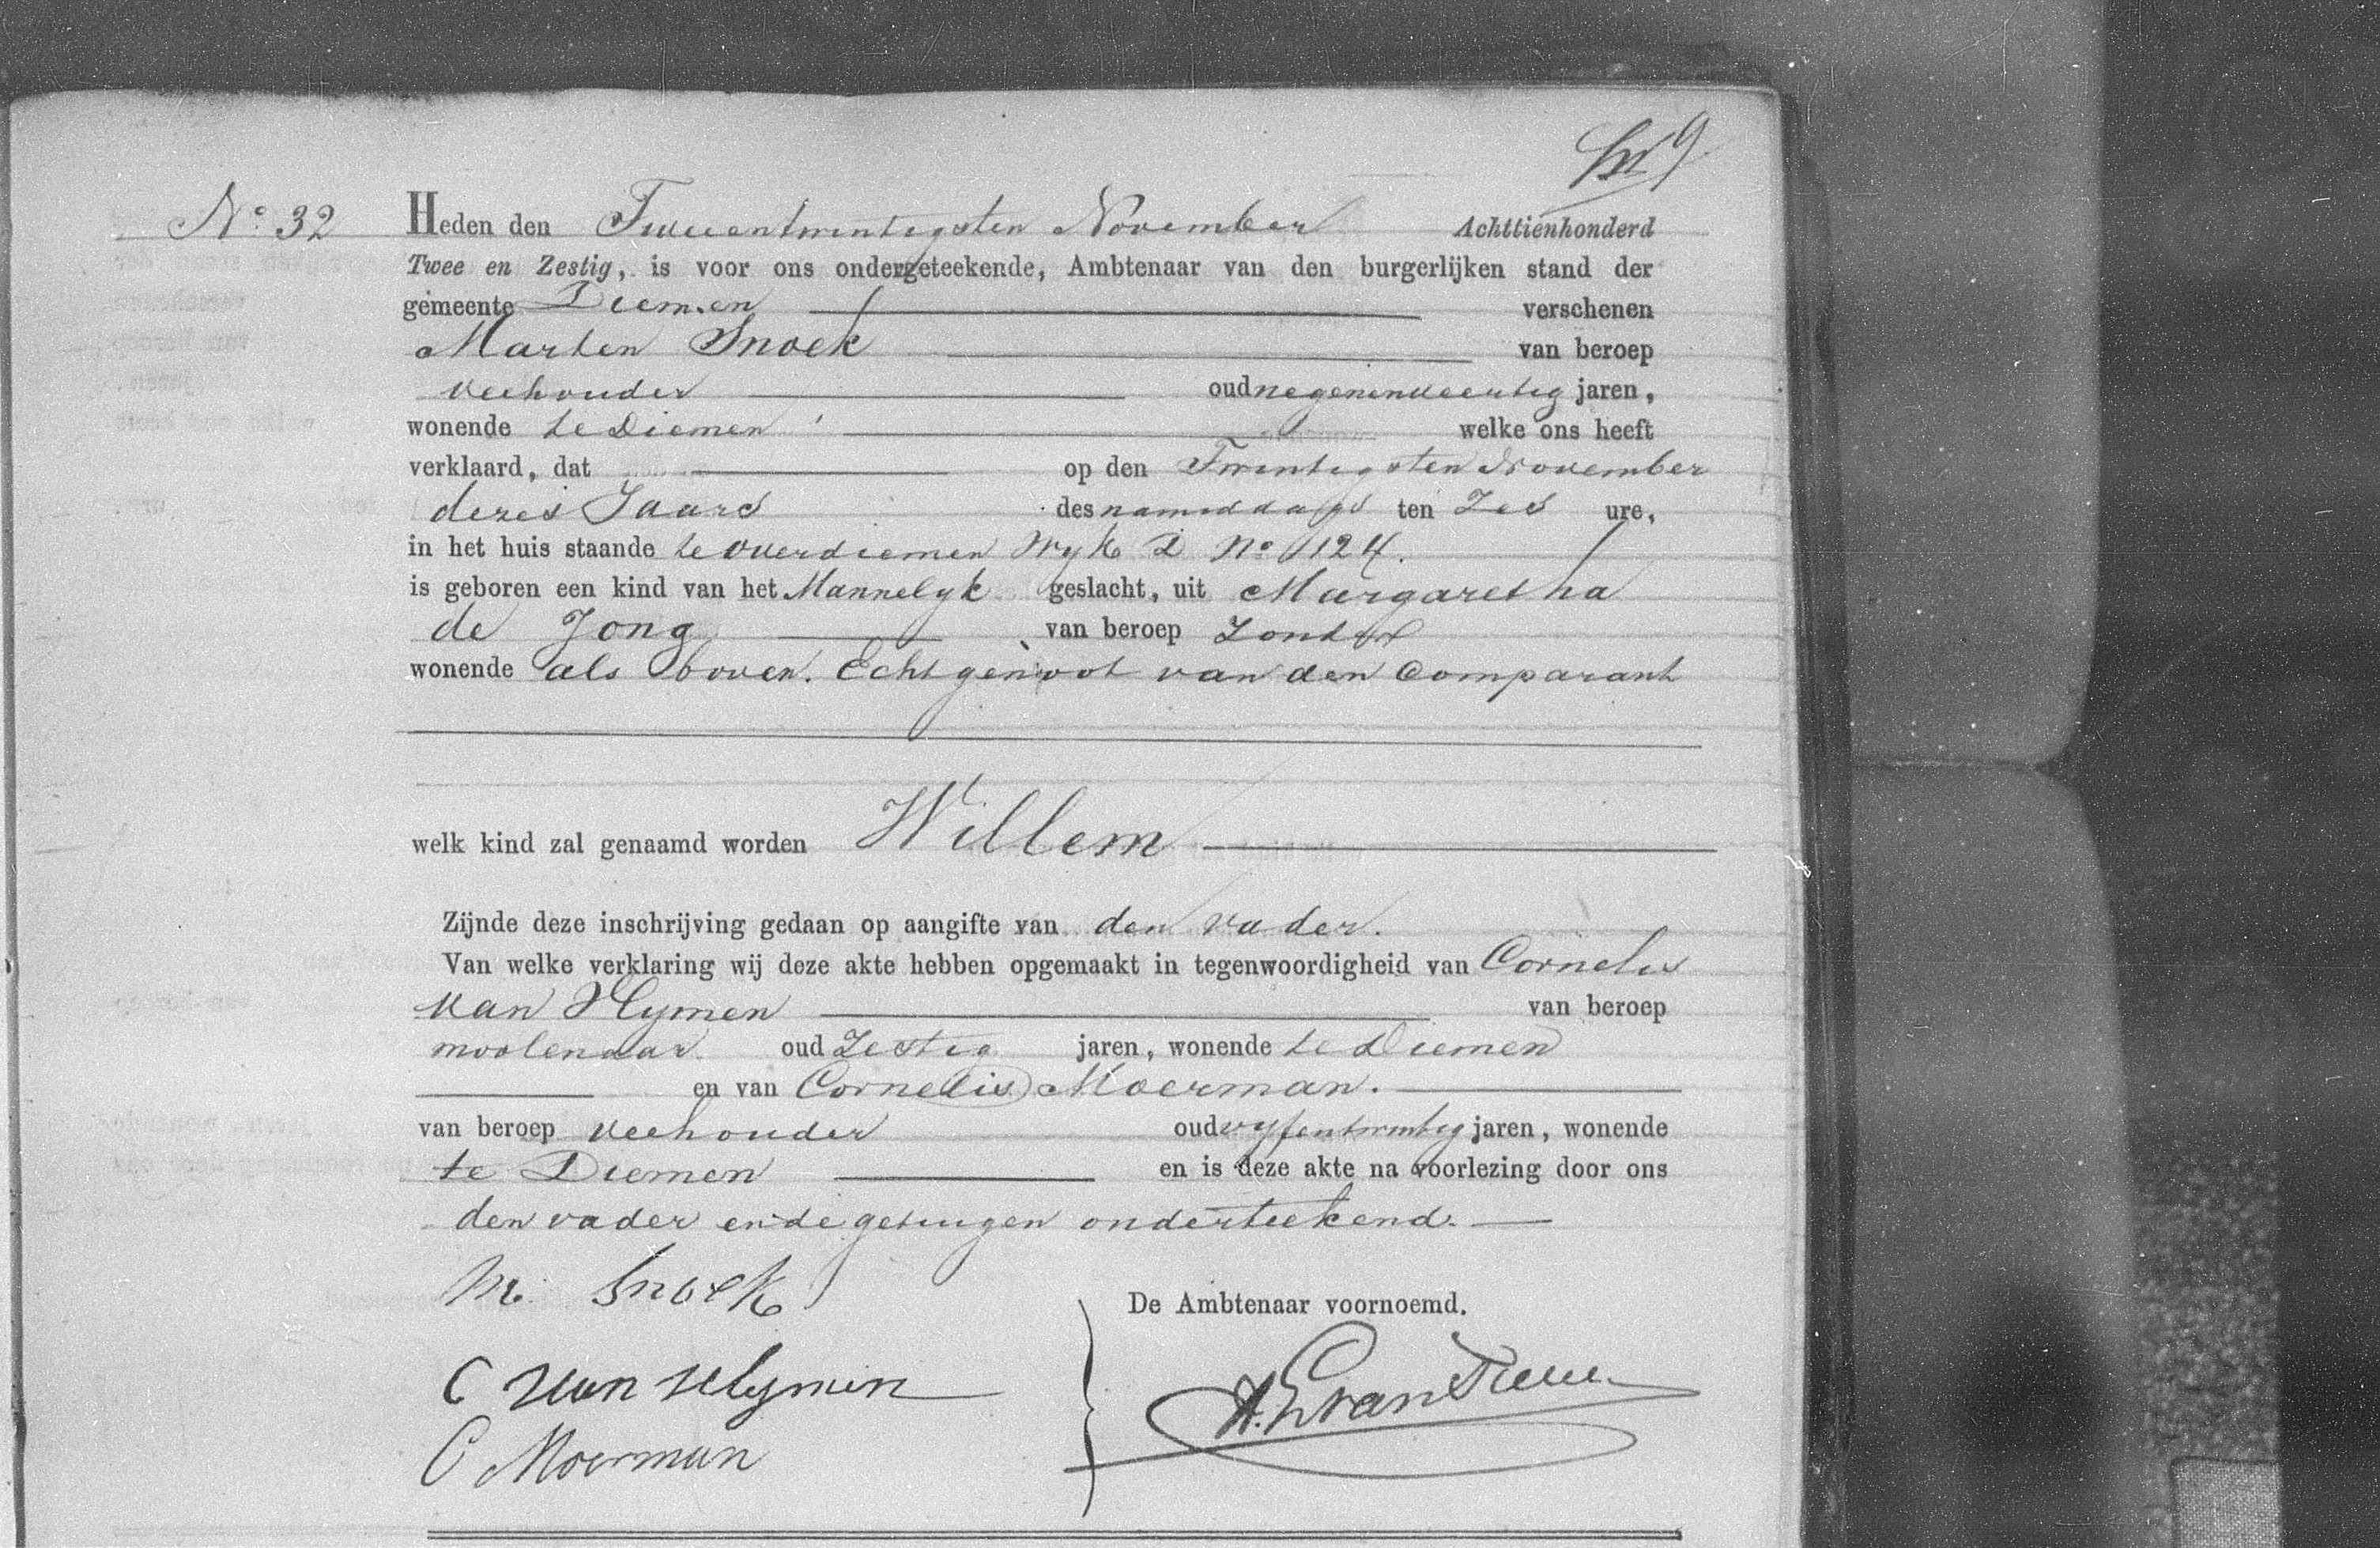 9
No 32 Heden den Tweeentwintigsten November Achttienhonderd
Twee en Zestig, is voor ons ondergeteekende, Ambtenaar van den burgerlijken stand der
gemeente Diemen verschenen
Marten Snoek van beroep
veehouder oud negenenveertig jaren,
wonende te Diemen welke ons heeft
verklaard, dat op den Twintigsten November
dezes Jaars des namiddags ten Zes ure,
in het huis staande te overdiemen Wyk D No 124.
is geboren een kind van het Mannelyk geslacht, uit Margaretha
de Jong van beroep Zonder
wonende als boven. Echtgenoot van den Comparant
welk kind zal genaamd worden Willem
Zijnde deze inschrijving gedaan op aangifte van den vader.
Van welke verklaring wij deze akte hebben opgemaakt in tegenwoordigheid van Cornelis
van Hymen van beroep
moolenaar oud Zestig jaren, wonende te Diemen
en van Cornelis Moerman.
van beroep veehouder oud vyfentwintig jaren, wonende
te Diemen en is deze akte na voorlezing door ons
den vader en de getuigen onderteekend.
M. Snoek
De Ambtenaar voornoemd.
C van Hymen
C Moerman